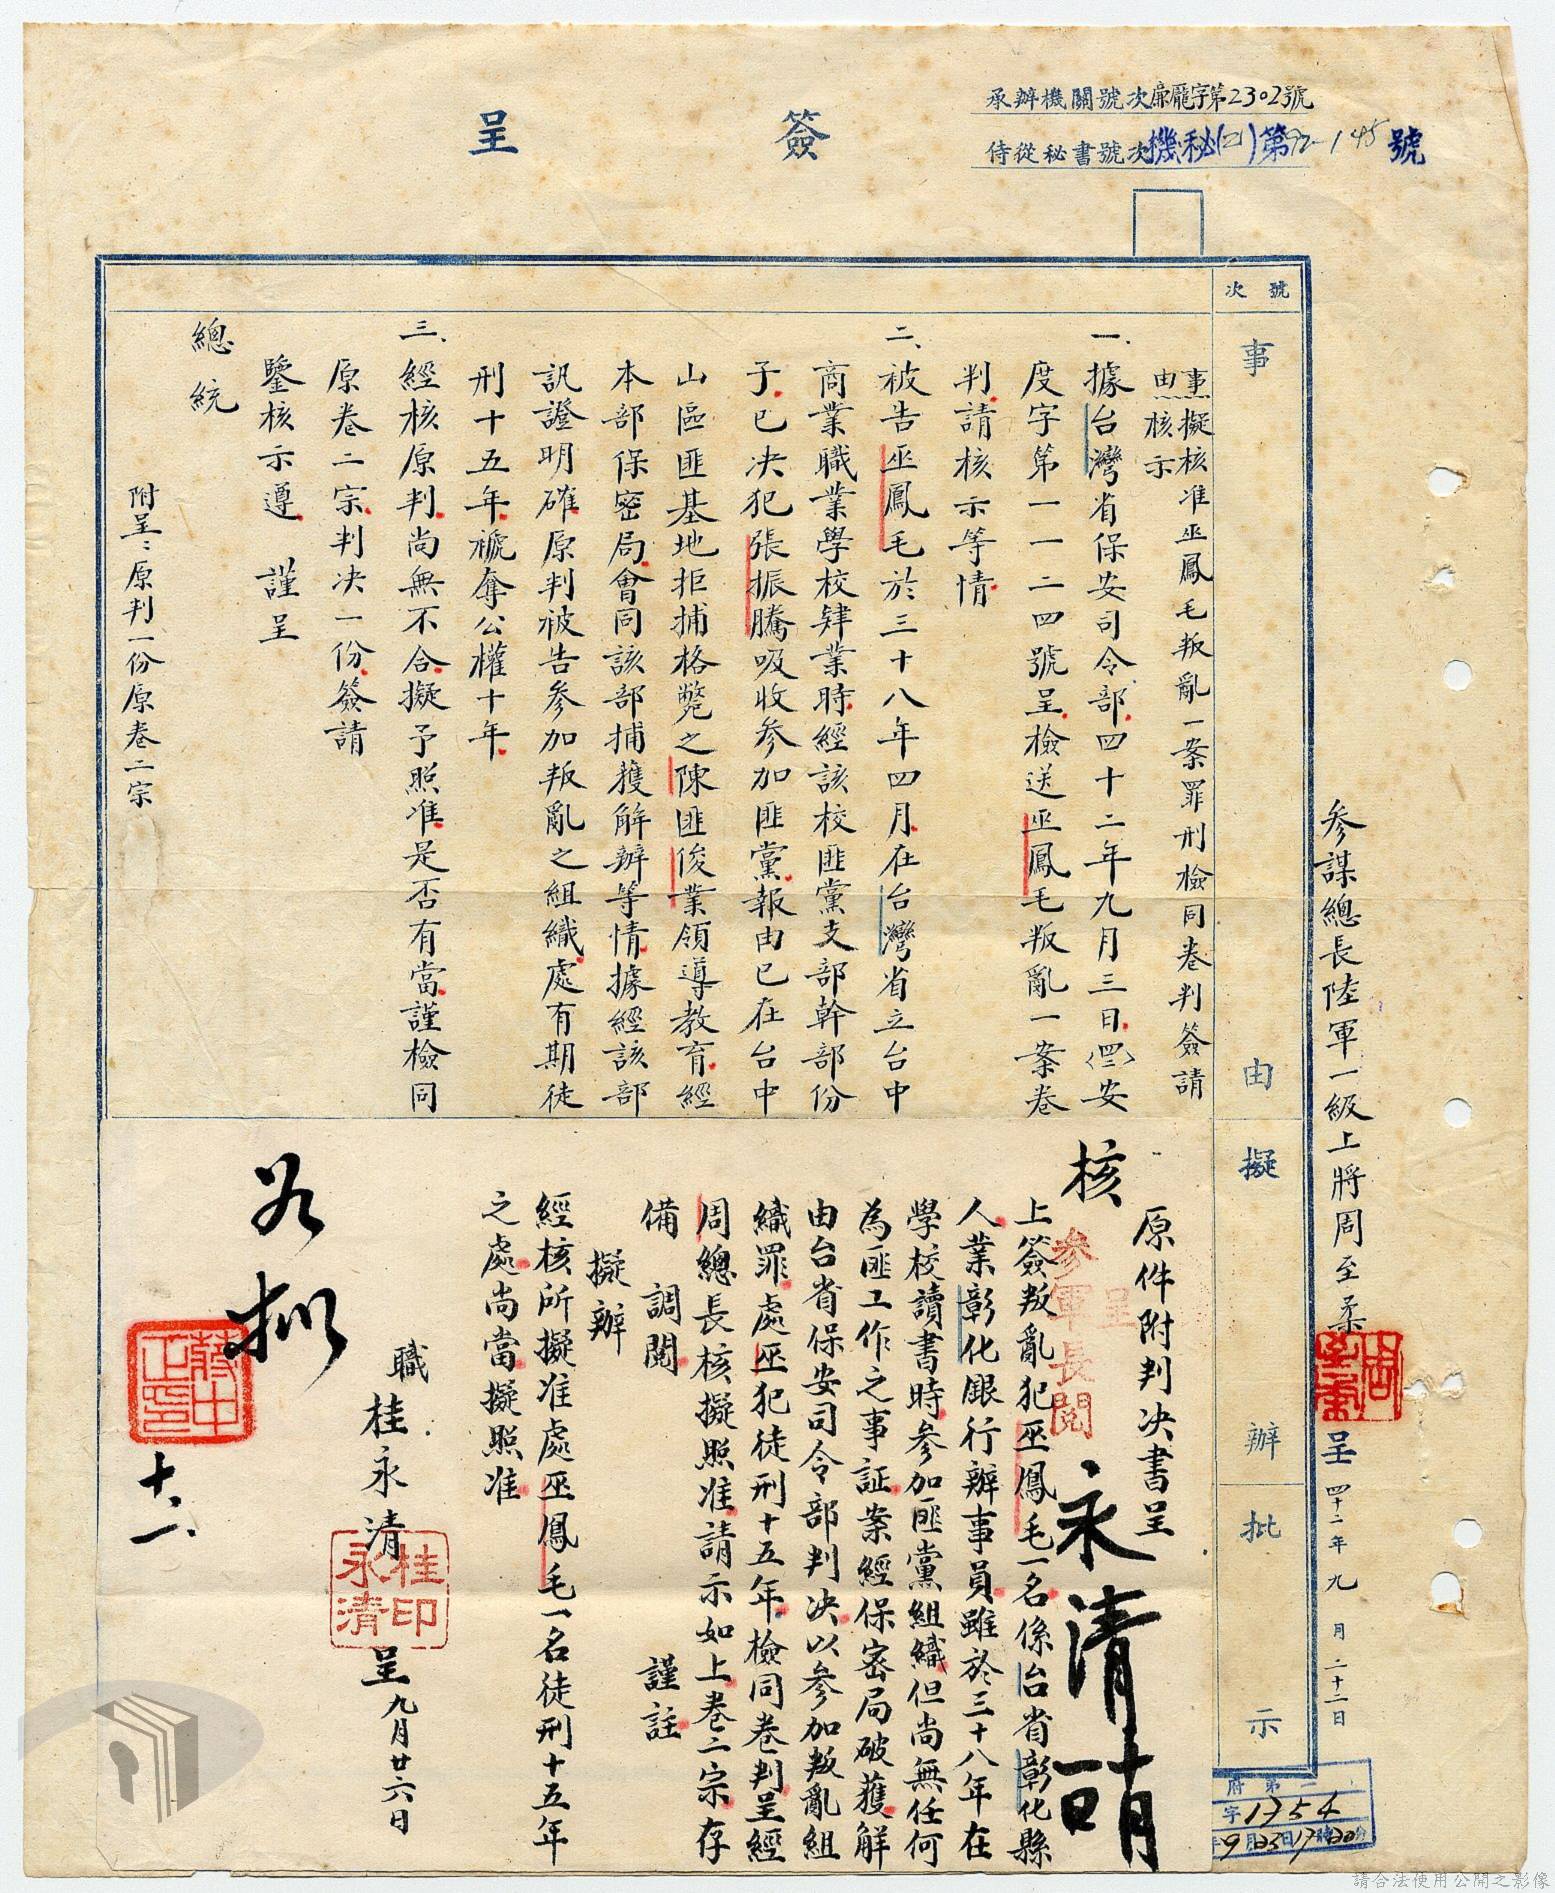 簽呈
承辦機關號次廉龐字第2302號
侍從秘書號次機秘(二)第92-145號
參謀總長陸軍一級上將周至柔
呈 四十二年九月二十二日
號次
事由
擬辦
批示
事由 擬核准巫鳳毛叛亂一案罪刑檢同卷判簽請
核示
一、據台灣省保安司令部四十二年九月三日(四二)安
度字第一一二四號呈檢送巫鳳毛叛亂一案卷
判請核示等情
二、被告巫鳳毛於三十八年四月在台灣省立台中
商業職業學校肄業時經該校匪黨支部幹部份
子已決犯張振騰吸收參加匪黨報由已在台中
山區匪基地拒捕格斃之陳匪俊業領導教育經
本部保密局會同該部捕獲解辦等情據經該部
訊證明確原判被告參加叛亂之組織處有期徒
刑十五年褫奪公權十年
三、經核原判尚無不合擬予照准是否有當謹檢同
原卷二宗判決一份簽請
鑒核示遵 謹呈
總統
附呈：原判一份原卷二宗
原件附判決書呈
核
呈
參軍長閱
永清
上簽叛亂犯巫鳳毛一名係台省彰化縣
人業彰化銀行辦事員雖於三十八年在
學校讀書時參加匪黨組織但尚無任何
為匪工作之事証案經保密局破獲解
由台省保安司令部判決以參加叛亂組
織罪處巫犯徒刑十五年檢同卷判呈經
周總長核擬照准請示如上卷二宗存
備調閱 謹註
擬辦
經核所擬准處巫鳳毛一名徒刑十五年
之處尚當擬照准
職桂永清 呈 九月廿六日
桂永清印
如擬
蔣中正印
十、一、
府第二
字1754
9月23日17時20分
請合法使用公開之影像